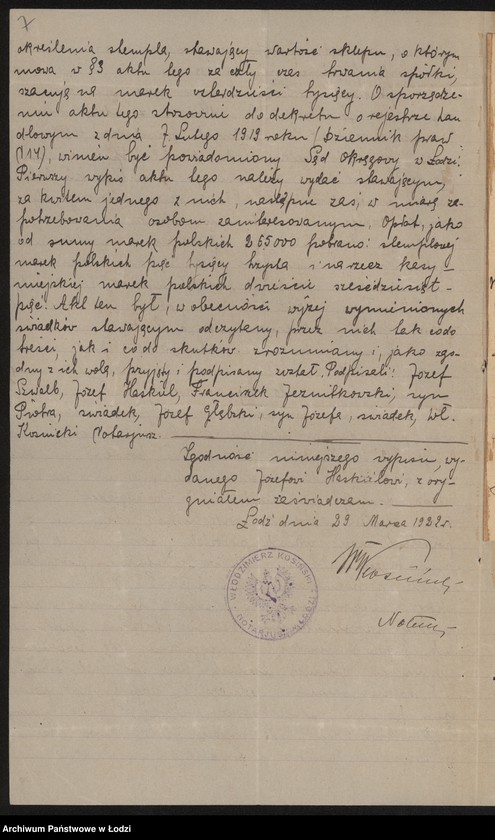 7
określenia stempla, stawający wartość sklepu, o którym
mowa w § 3 aktu tego za cały czas trwania spółki,
szacują na marek dwieście tysięcy. O sporządze-
niu aktu tego stosownie do dekretu o rejestrze han
dlowym z dnia 7 Lutego 1919 roku (Dziennik praw
114), winien być powiadomiony Sąd Okręgowy w Łodzi.
Pierwszy wypis aktu tego należy wydać stawającym,
za kwitem jednego z nich, następne zaś, w miarę za-
potrzebowania osobom zainteresowanym. Opłat, jako
od sumy marek polskich 265000 pobrano: stemplowej
marek polskich pięć tysięcy trzysta i na rzecz kasy
miejskiej marek polskich dwieście sześćdziesiąt-
pięć. Akt ten był, w obecności wyżej wymienionych
świadków stawającym odczytany, przez nich tak co do
treści, jak i co do skutków zrozumiany i, jako zgo-
dny z ich wolą, przyjęty i podpisany został. Podpisali: Józef
Szwalb, Józef Haskiel, Franciszek syn
Piotra, świadek, Józef Głębski, syn Józefa, świadek, Wł.
Kosiński Notarjusz.
Zgodność niniejszego wypisu, wy-
danego Józefowi Haskielowi, z ory-
ginałem zaświadczam.
Łódź dnia 29 Marca 1922 r.
WŁODZIMIERZ KOSIŃSKI
Wł Kosiński